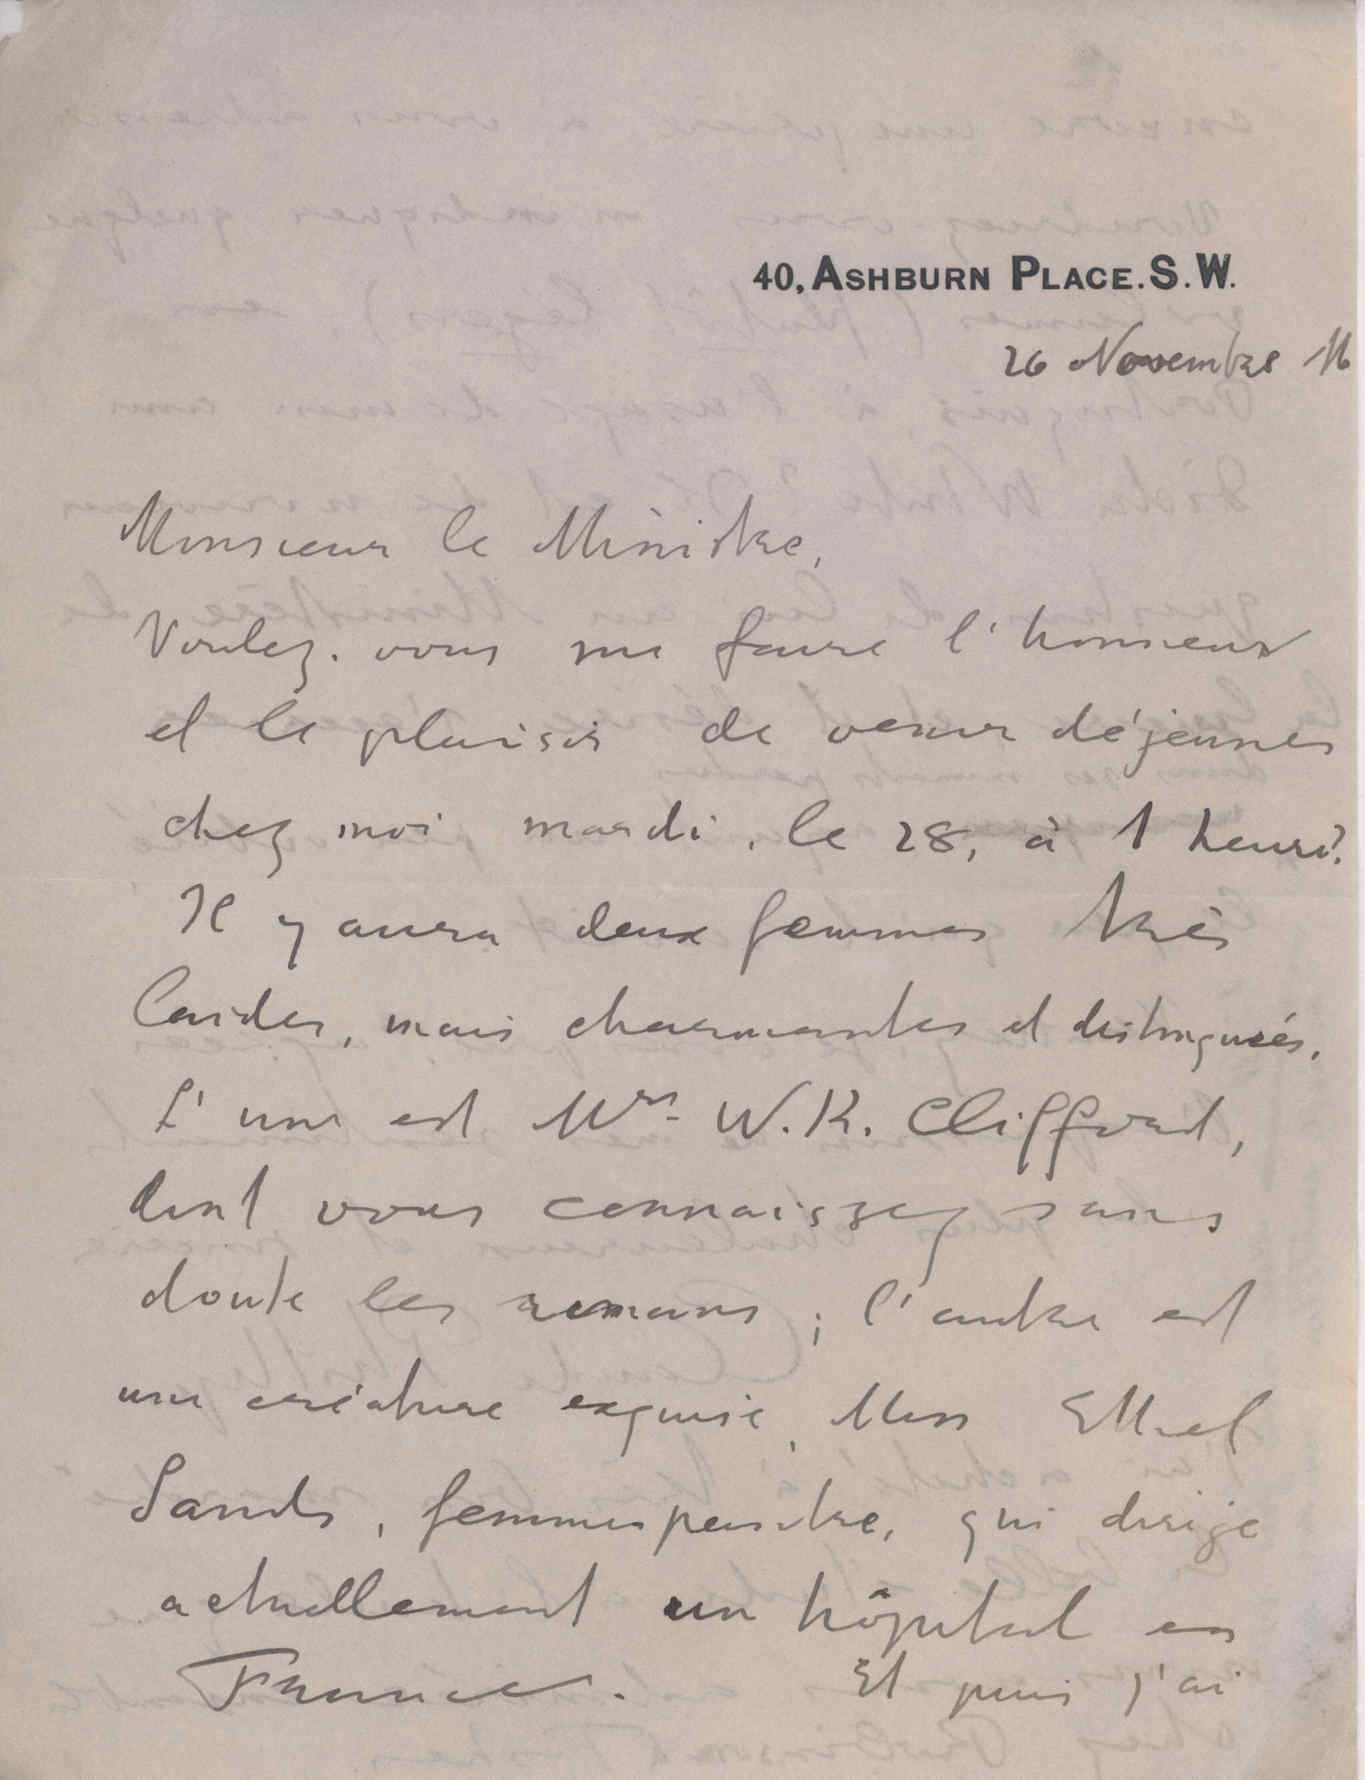 40, ASHBURN PLACE. S. W.
26 Novembre 16
Monsieur le Ministre,
Voulez-vous me faire l'honneur
et le plaisir de venir déjeuner
chez moi mardi, le 28, à 1 heure?
Il y aura deux femmes très
laides, mais charmantes et distinguées.
L'une est Mrs. W. K. Clifford,
dont vous connaissez sans
doute les romans; l'autre est
une créature exquise, Miss Ethel
Sands, femme peintre, qui dirige
actuellement un hôpital en
France. Et puis j'ai